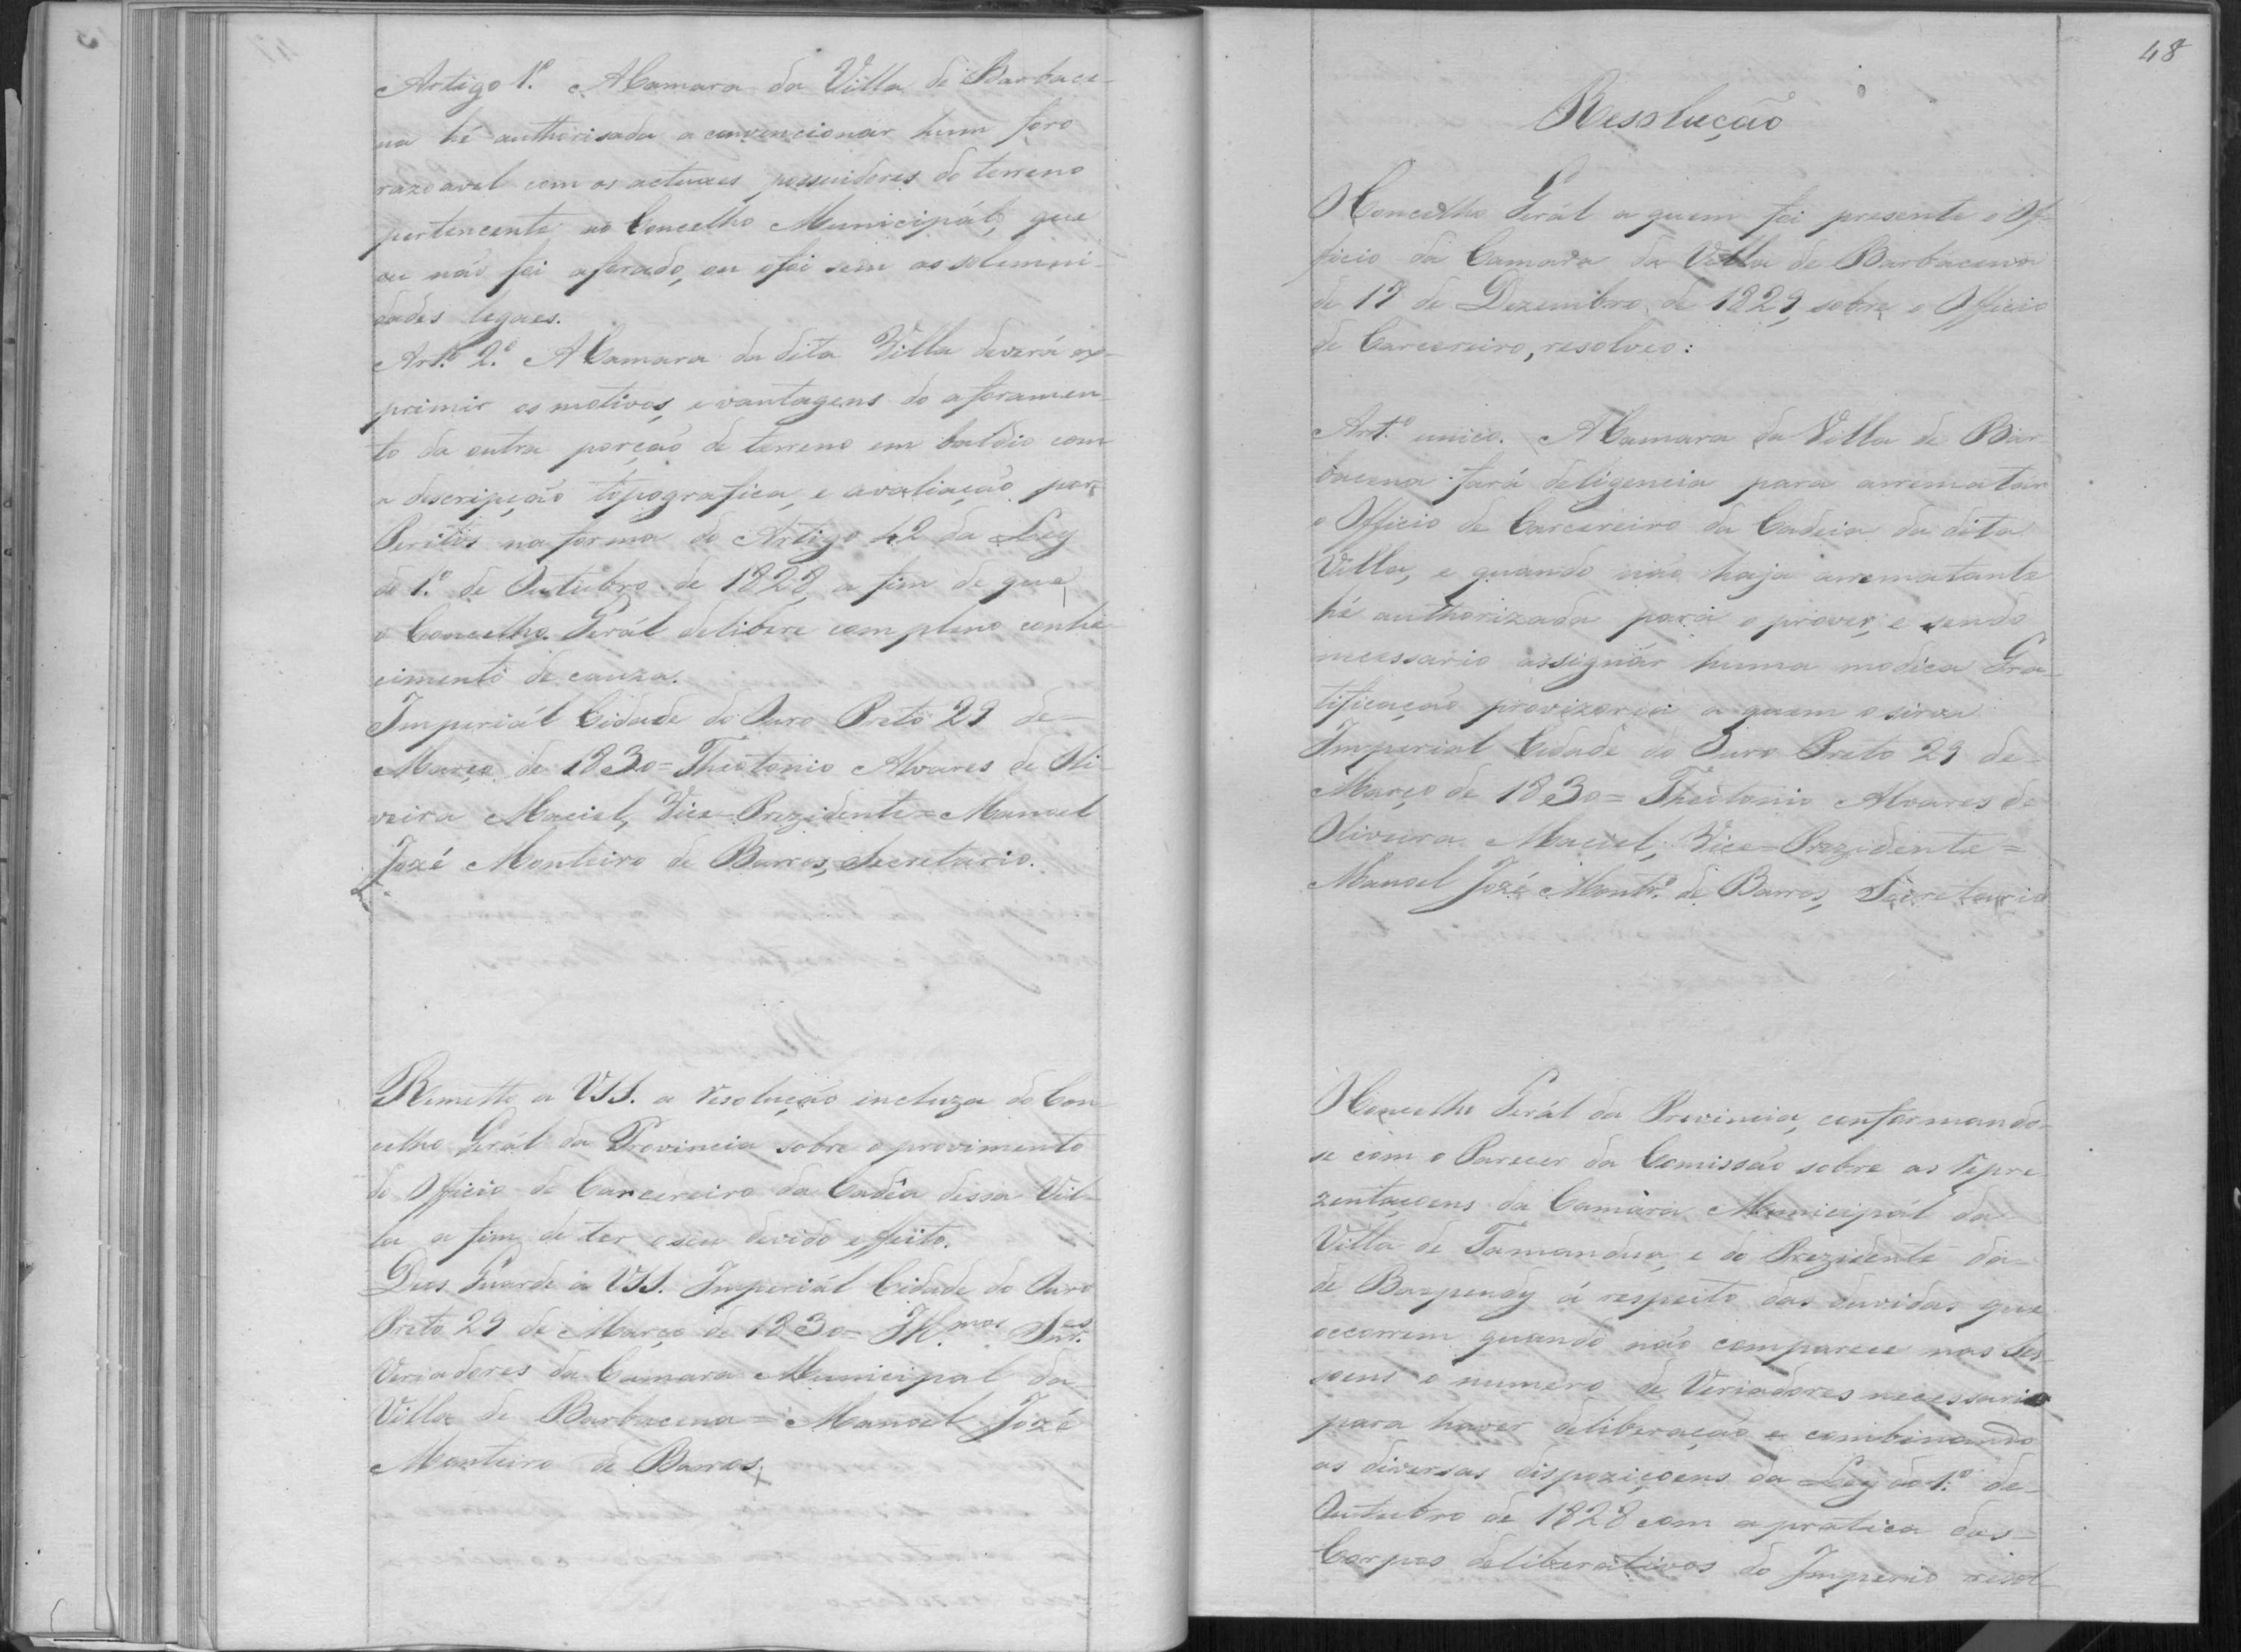 Artigo 1.º A Camara da Villa de Barbace-
na hé authorisada a convencionar hum foro
razoavel com os actuaes possuidores do terreno
pertencente ao Concelho Municipál, que
ou não foi aforado, ou o foi sem as solemni-
dades legaes.
Art.º 2.º A Camara da dita Villa deverá ex-
primir os motivos, e vantagens do aforamen-
to da outra porção de terreno em baldio com
a descripção topografica, e avaliação por
Peritos na forma do Artigo 42 da Ley
do 1.º de Outubro de 1828, a fim de que
o Concelho Gerál delibere com pleno conhe-
cimento de cauza.
Imperiál Cidade do Ouro Preto 29 de
Março de 1830 = Theotonio Alvares de Oli-
veira Maciel, Vice-Prezidente = Manoel
Jozé Monteiro de Barros, Secretario.
Remetto a VSS. a resolução incluza do Con-
celho Gerál da Provincia sobre o provimento
do Officio de Carcereiro da Cadêa dessa Vil-
la a fim de ter o seu devido effeito.
Deos Guarde a VSS. Imperiál Cidade do Ouro
Preto 29 de Março de 1830 = Ill.mos Snr.es
Veriadores da Camara Municipal da
Villa de Barbacena = Manoel Jozé
Monteiro de Barros
48
Resolução
O Concelho Gerál a quem foi presente o Of-
ficio da Camara da Villa de Barbacena
de 18 de Dezembro de 1829, sobre o Officio
de Carcereiro, resolveo:
Art.º unico. A Camara da Villa de Bar-
bacena fará deligencia para arrematar
o Officio de Carcereiro da Cadeia da dita
Villa, e quando não haja arrematante
hé authorizada para o prover, e sendo
necessario assignár huma modica Gra-
tificação provizoria a quem o sirva
Imperial Cidade do Ouro Preto 29 de
Março de 1830 = Theotonio Alvares de
Oliveira Maciel, Vice-Prezidente =
Manoel Jozé Montr.º de Barros, Secretario
O Concelho Gerál da Provincia, conformando-
se com o Parecer da Comissão sobre as repre-
zentaçoens da Camara Municipál da
Villa de Tamandua, e do Prezidente da
de Baependy á respeito das duvidas que
occorrem quando não comparece nas Ses-
soens o numero de Veriadores necessario
para haver deliberação e combinando
as diversas dispoziçoens da Ley do 1.º de
Outubro de 1828 com a pratica dos
Corpos deliberativos do Imperio resol-